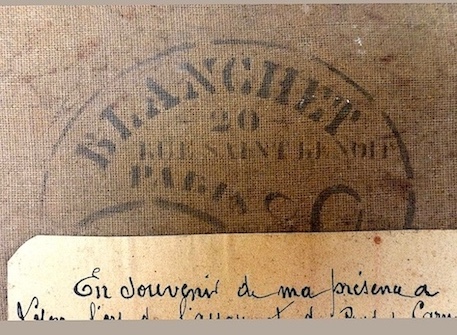 BLANCHET
20
RUE SAINT BENOIT
PARIS
En souvenir de ma présence a